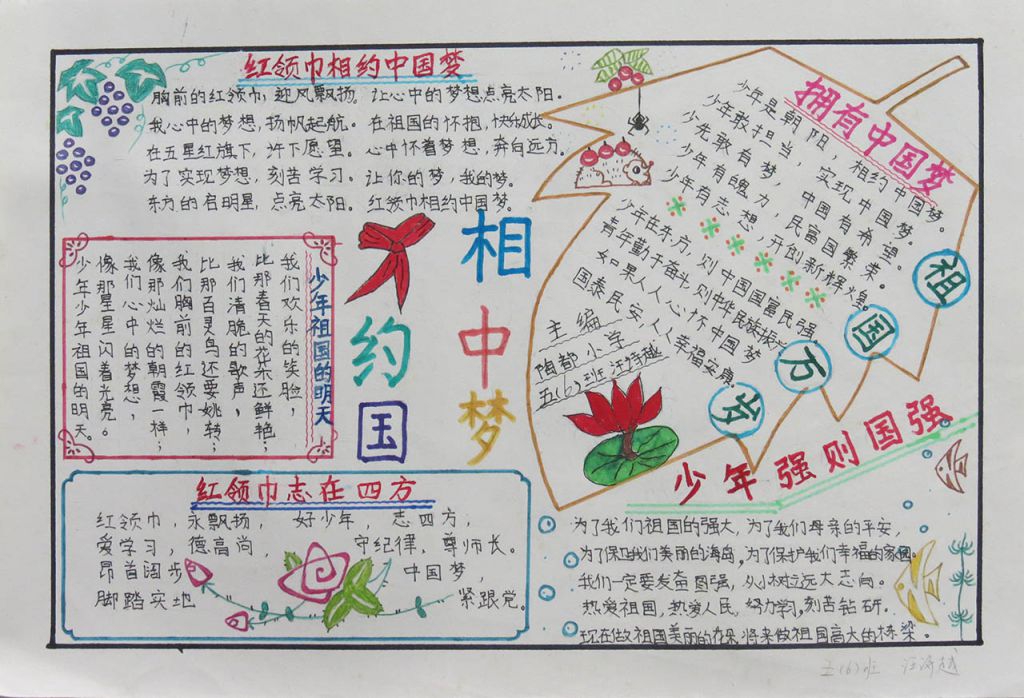 红领巾相约中国梦
胸前的红领巾，迎风飘扬。让心中的梦想点亮太阳。
我心中的梦想，扬帆起航。在祖国的怀抱，快乐成长。
在五星红旗下，许下愿望。心中怀着梦想，奔向远方。
为了实现梦想，刻苦学习。让你的梦，我的梦。
东方的启明星，点亮太阳。红领巾相约中国梦。
相约中国梦
少年祖国的明天
我们欢乐的笑脸，
比那春天的花朵还鲜艳；
我们清脆的歌声，
比那百灵鸟还要婉转；
我们胸前的红领巾，
像那灿烂的朝霞一样；
我们心中的梦想，
像那星星闪着光亮。
少年少年祖国的明天。
红领巾志在四方
红领巾，永飘扬，好少年，志四方，
爱学习，德高尚，守纪律，尊师长。
昂首阔步 中国梦，
脚踏实地 紧跟党。
拥有中国梦
少年是朝阳，相约中国梦。
少年敢担当，实现中国梦。
少先敢有梦，中国有希望。
少年有魄力，民富国繁荣。
少年有志想，开创新辉煌。
少年在东方，则中国国富民强。
青年勤于奋斗，则中华民族振兴
如果人人心怀中国梦
国泰民安，人人幸福安康。
主编
陶都小学
五(6)班 汪特越
祖国万岁
少年强则国强
为了我们祖国的强大，为了我们母亲的平安，
为了保卫我们美丽的海岛，为了保护我们幸福的家园。
我们一定要发奋图强，从小树立远大志向。
热爱祖国，热爱人民，努力学习，刻苦钻研。
现在做祖国美丽的花朵，将来做祖国高大的栋梁。
五(6)班